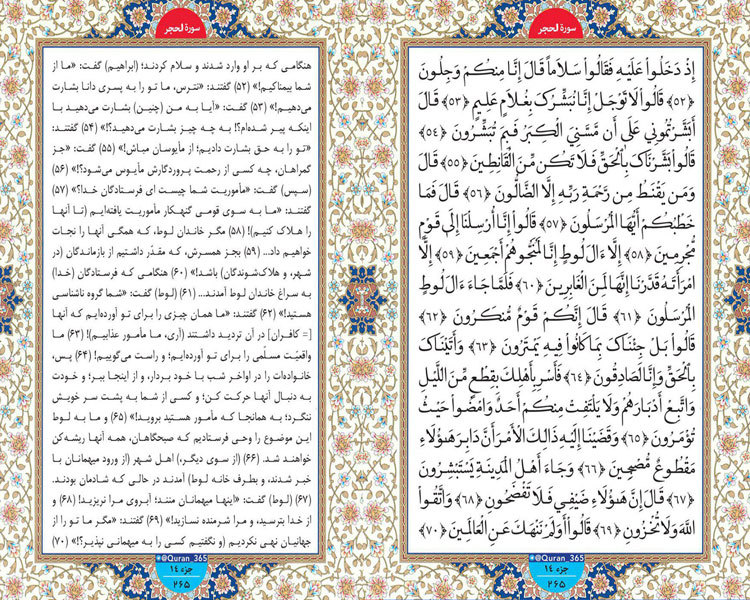 سورة الحجر
إِذْ دَخَلُوا عَلَيْهِ فَقَالُوا سَلَامًا قَالَ إِنَّا مِنكُمْ وَجِلُونَ
﴿٥٢﴾ قَالُوا لَا تَوْجَلْ إِنَّا نُبَشِّرُكَ بِغُلَامٍ عَلِيمٍ ﴿٥٣﴾ قَالَ
أَبَشَّرْتُمُونِي عَلَى أَن مَّسَّنِيَ الْكِبَرُ فَبِمَ تُبَشِّرُونَ ﴿٥٤﴾
قَالُوا بَشَّرْنَاكَ بِالْحَقِّ فَلَا تَكُن مِّنَ الْقَانِطِينَ ﴿٥٥﴾ قَالَ
وَمَن يَقْنَطُ مِن رَّحْمَةِ رَبِّهِ إِلَّا الضَّالُّونَ ﴿٥٦﴾ قَالَ فَمَا
خَطْبُكُمْ أَيُّهَا الْمُرْسَلُونَ ﴿٥٧﴾ قَالُوا إِنَّا أُرْسِلْنَا إِلَى قَوْمٍ
مُّجْرِمِينَ ﴿٥٨﴾ إِلَّا ءَالَ لُوطٍ إِنَّا لَمُنَجُّوهُمْ أَجْمَعِينَ ﴿٥٩﴾ إِلَّا
امْرَأَتَهُ قَدَّرْنَا إِنَّهَا لَمِنَ الْغَابِرِينَ ﴿٦٠﴾ فَلَمَّا جَاءَ ءَالَ لُوطٍ
الْمُرْسَلُونَ ﴿٦١﴾ قَالَ إِنَّكُمْ قَوْمٌ مُّنكَرُونَ ﴿٦٢﴾
قَالُوا بَلْ جِئْنَاكَ بِمَا كَانُوا فِيهِ يَمْتَرُونَ ﴿٦٣﴾ وَأَتَيْنَاكَ
بِالْحَقِّ وَإِنَّا لَصَادِقُونَ ﴿٦٤﴾ فَأَسْرِ بِأَهْلِكَ بِقِطْعٍ مِّنَ اللَّيْلِ
وَاتَّبِعْ أَدْبَارَهُمْ وَلَا يَلْتَفِتْ مِنكُمْ أَحَدٌ وَامْضُوا حَيْثُ
تُؤْمَرُونَ ﴿٦٥﴾ وَقَضَيْنَا إِلَيْهِ ذَٰلِكَ الْأَمْرَ أَنَّ دَابِرَ هَٰؤُلَاءِ
مَقْطُوعٌ مُّصْبِحِينَ ﴿٦٦﴾ وَجَاءَ أَهْلُ الْمَدِينَةِ يَسْتَبْشِرُونَ
﴿٦٧﴾ قَالَ إِنَّ هَٰؤُلَاءِ ضَيْفِي فَلَا تَفْضَحُونِ ﴿٦٨﴾ وَاتَّقُوا
اللَّهَ وَلَا تُخْزُونِ ﴿٦٩﴾ قَالُوا أَوَلَمْ نَنْهَكَ عَنِ الْعَالَمِينَ ﴿٧٠﴾
@Quran_365
جزء ١٤
٢٦٥
سورة الحجر
هنگامی که بر او وارد شدند و سلام کردند؛ (ابراهیم) گفت: «ما از
شما بیمناکیم!» (۵۲) گفتند: «نترس، ما تو را به پسری دانا بشارت
می‌دهیم!» (۵۳) گفت: «آیا به من (چنین) بشارت می‌دهید با
اینکه پیر شده‌ام؟! به چه چیز بشارت می‌دهید؟!» (۵۴) گفتند:
«تو را به حق بشارت دادیم؛ از مأیوسان مباش!» (۵۵) گفت: «جز
گمراهان، چه کسی از رحمت پروردگارش مأیوس می‌شود؟!» (۵۶)
(سپس) گفت: «مأموریت شما چیست ای فرستادگان خدا؟» (۵۷)
گفتند: «ما به سوی قومی گنهکار مأموریت یافته‌ایم (تا آنها
را هلاک کنیم)! (۵۸) مگر خاندان لوط، که همگی آنها را نجات
خواهیم داد... (۵۹) بجز همسرش، که مقدّر داشتیم از بازماندگان (در
شهر، و هلاک‌شوندگان) باشد!» (۶۰) هنگامی که فرستادگان (خدا)
به سراغ خاندان لوط آمدند... (۶۱) (لوط) گفت: «شما گروه ناشناسی
هستید!» (۶۲) گفتند: «ما همان چیزی را برای تو آورده‌ایم که آنها
[= کافران] در آن تردید داشتند (آری، ما مأمور عذابیم)! (۶۳) ما
واقعیّت مسلّمی را برای تو آورده‌ایم؛ و راست می‌گوییم! (۶۴) پس،
خانواده‌ات را در اواخر شب با خود بردار، و از اینجا ببر؛ و خودت
به دنبال آنها حرکت کن؛ و کسی از شما به پشت سر خویش
ننگرد؛ به همانجا که مأمور هستید بروید!» (۶۵) و ما به لوط
این موضوع را وحی فرستادیم که صبحگاهان، همه آنها ریشه‌کن
خواهند شد. (۶۶) (از سوی دیگر،) اهل شهر (از ورود میهمانان با
خبر شدند، و بطرف خانه لوط) آمدند در حالی که شادمان بودند.
(۶۷) (لوط) گفت: «اینها میهمانان منند؛ آبروی مرا نریزید! (۶۸) و
از خدا بترسید، و مرا شرمنده نسازید!» (۶۹) گفتند: «مگر ما تو را از
جهانیان نهی نکردیم (و نگفتیم کسی را به میهمانی نپذیر؟!» (۷۰)
@Quran_365
جزء ١٤
٢٦٥